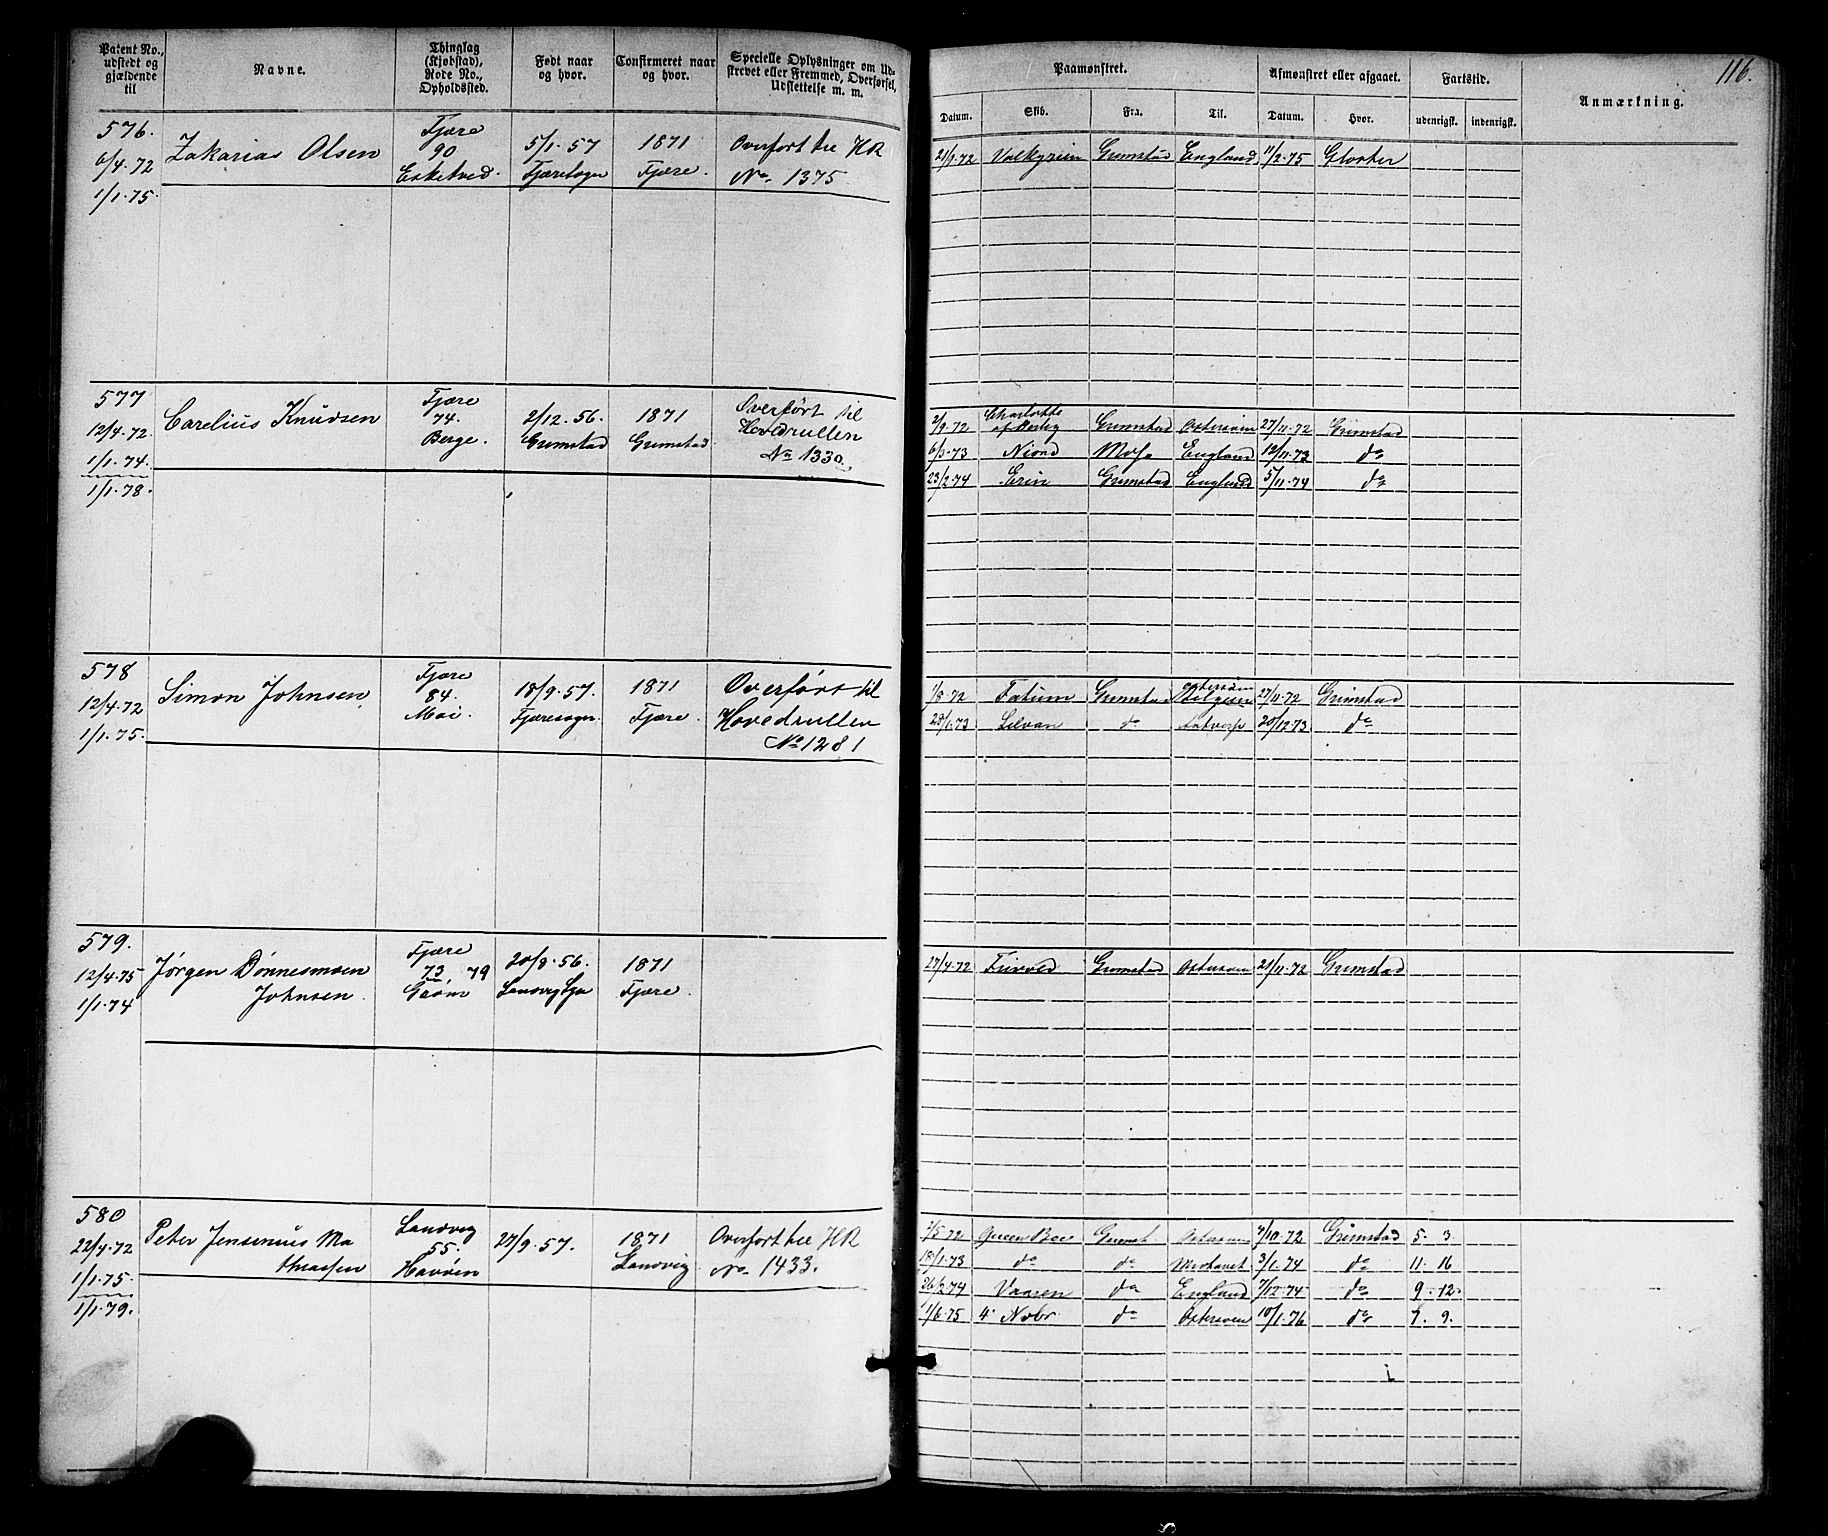 Patent No., udstedt og gjældende til
Navne.
Thinglag (Kjøbstad), Rode No., Opholdssted.
Født naar og hvor.
Confirmeret naar og hvor.
Specielle Oplysninger om Udskrevet eller Fremmed, Overførsel, Udslettelse m. m.
Paamønstret.
Afmønstret eller afgaaet.
Fartstid.
Anmærkning.
116.
Datum.
Skib.
Fra.
Til.
Datum.
Hvor.
udenrigsk.
indenrigsk.
576.
6/4-72
1/1-75.
Zakarias Olsen
Fjære
90
Eskelved.
5/1-57
Fjæresogn
1871
Fjære.
Overført til HR
No. 1375
21/9-72 Valkyrien Grimstad England 11/2-75 Gloster
577
12/4-72.
1/1-74.
1/1-78.
Carelius Knudsen
Fjære
74.
Berge.
2/12-56.
Grimstad
1871
Grimstad.
Overført til
Hovedrullen
No 1330
2/9-72 Charlotte Grimstad Østersøen 27/11-72 Grimstad
6/3-73 Niord Moss England 12/11-73 do
23/2-74 Erin Grimstad England 5/11-74 do
578
12/4-72
1/1-75.
Simon Johnsen
Fjære
84.
Moi.
18/9-57.
Fjæresogn
1871
Fjære.
Overført til
Hovedrullen
No 1281
1/8-72 Fatum Grimstad Østersøen 27/11-72 Grimstad
28/1-73 Silvan do Antwerp 20/12-73 do
579.
12/4-75
1/1-74
Jørgen Dønnesmoen
Johnsen.
Fjære
73 79
Grøm
20/8-56.
Landvig Sgn
1871
Fjære.
17/4-72 Grimstad Østersøen 21/11-72 Grimstad
580
22/4-72
1/1-75.
1/1-79.
Peter Jensenius Ma
thiassen
Landvig
55.
Havøen
27/9-57.
1871
Landvig
Overført til HR
No. 1433.
7/5-72 Queen Bee Grimst Østersøen 7/10-72 Grimstad 5. 3.
18/1-73 do do Middhavet 3/1-74 do 11. 16
26/2-74 Vaaren do England 7/12-74 do 9. 12.
1/6-75 4' Novbr do Østersøen 10/1-76 do 7. 9.